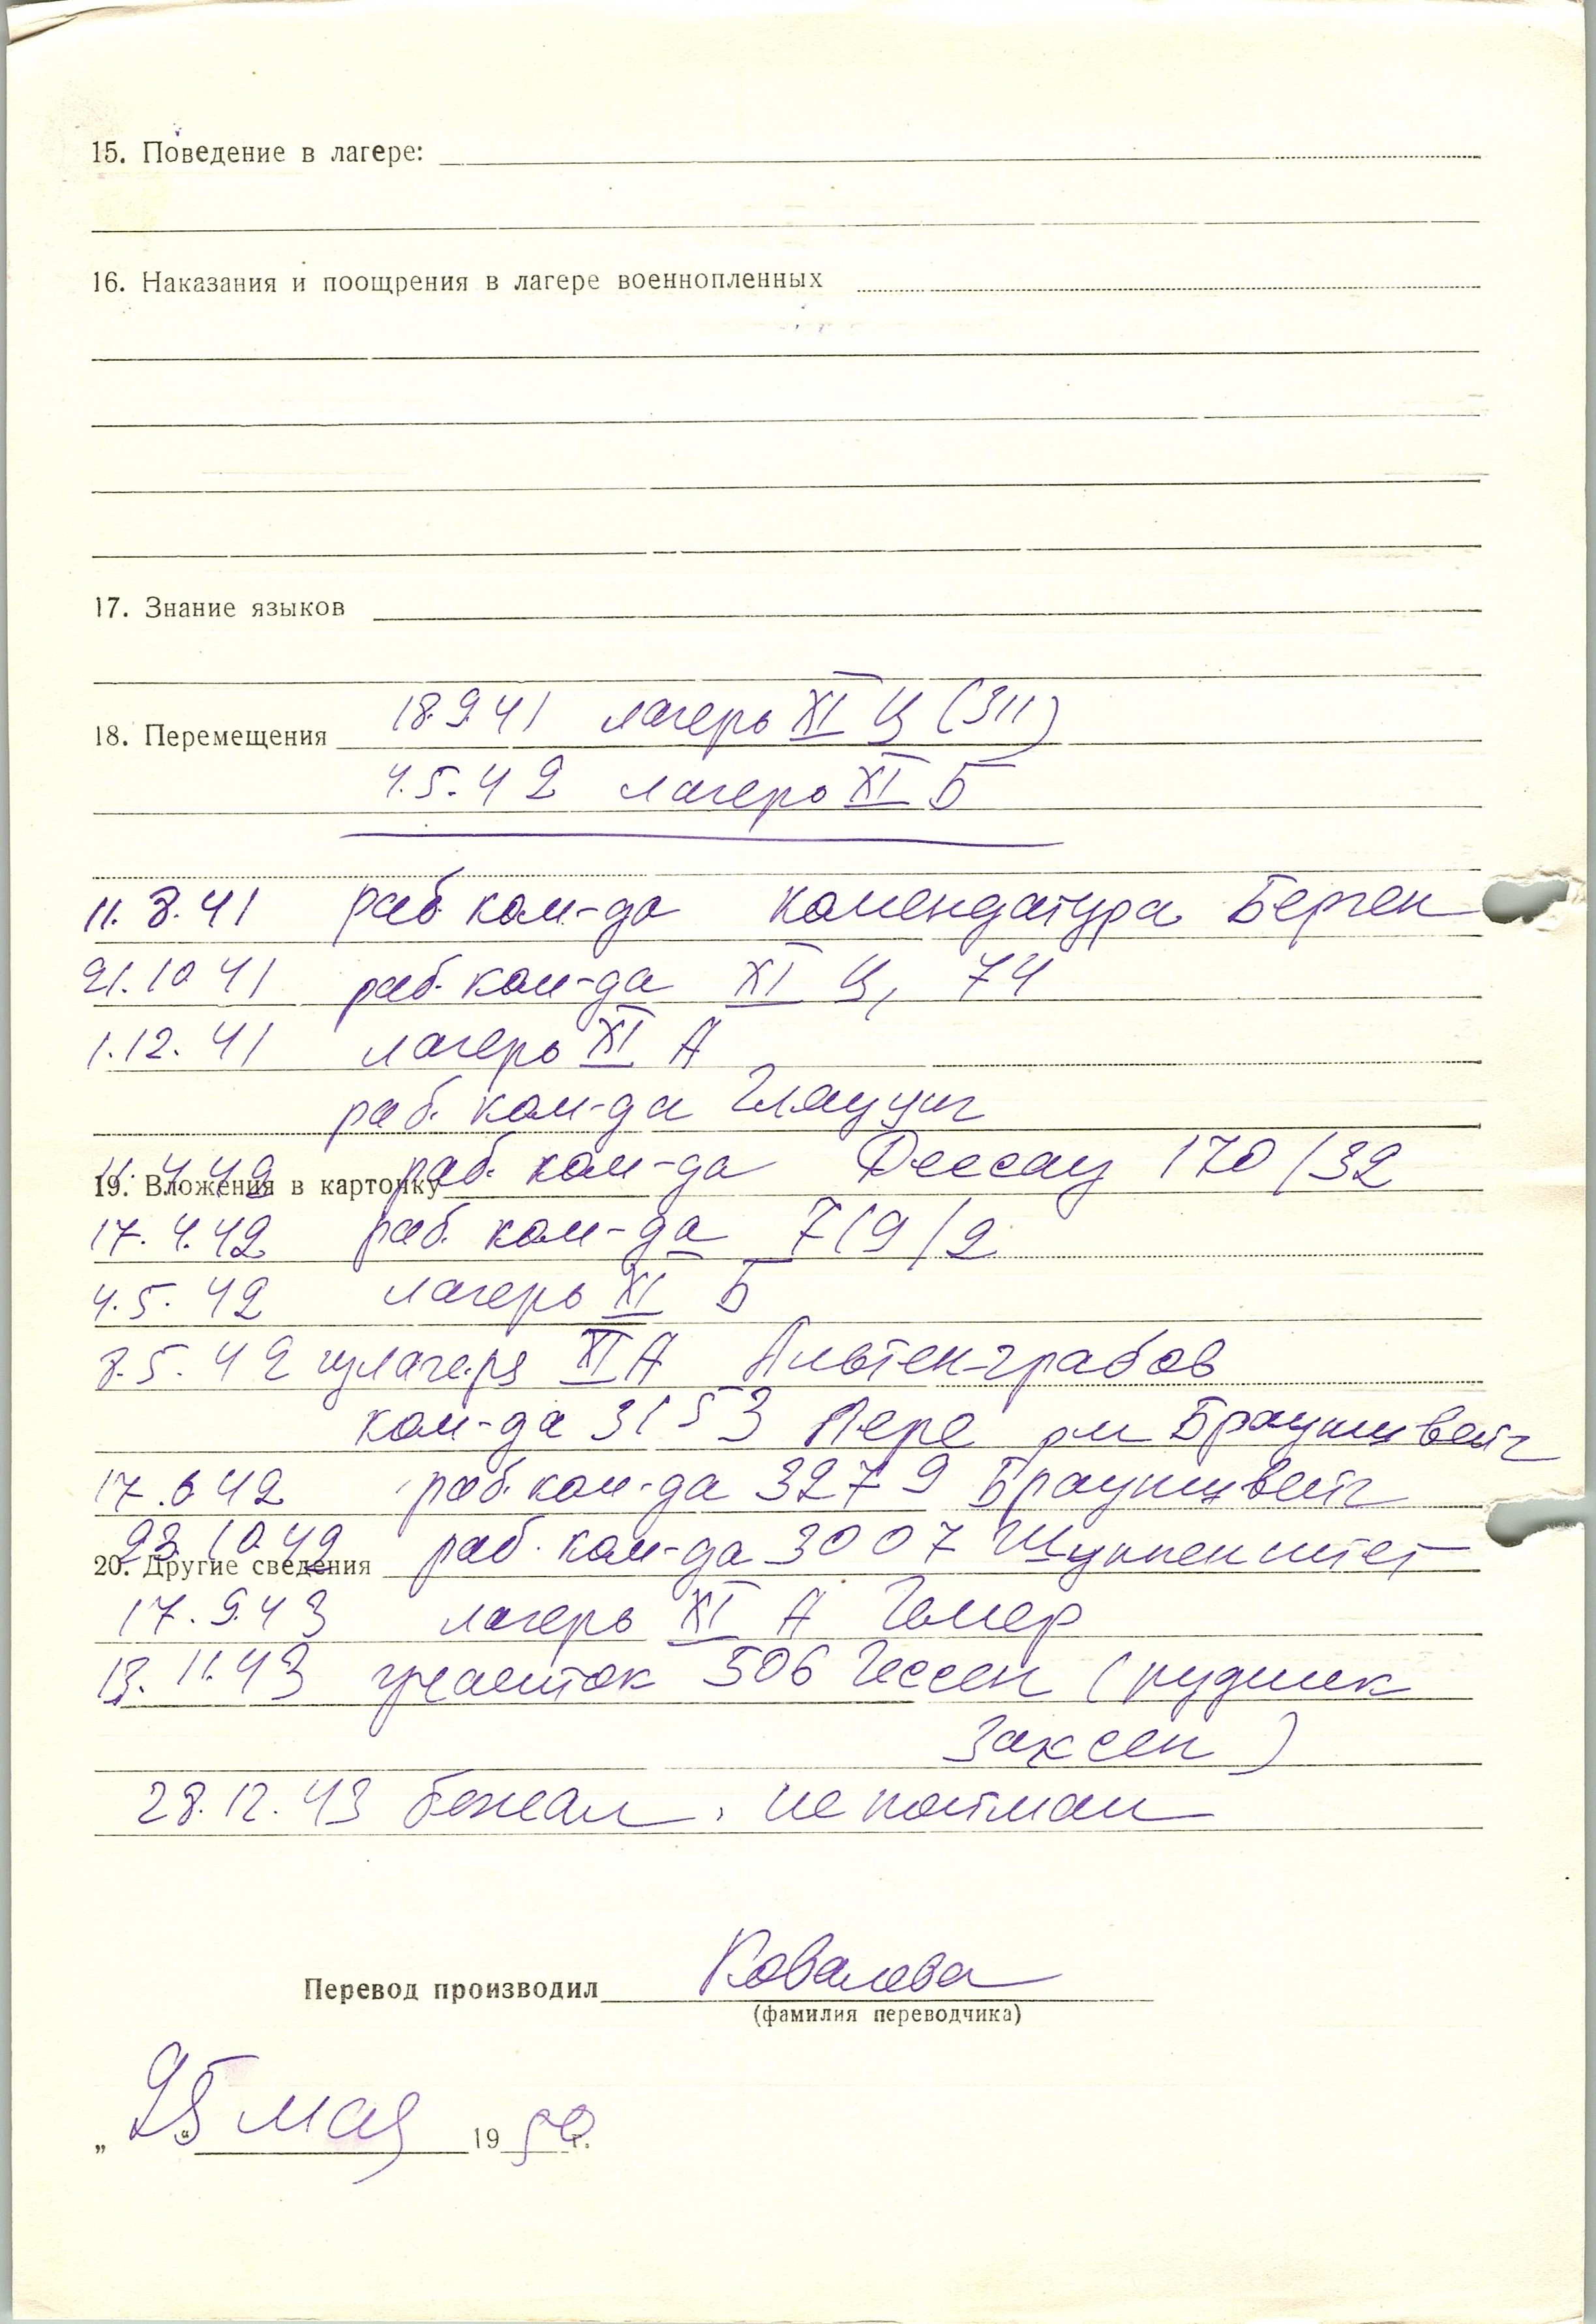 15. Поведение в лагере:
16. Наказания и поощрения в лагере военнопленных
17. Знание языков
18. Перемещения 18.9.41 лагерь XI Ц (311)
4.5.42 лагерь XI Б
11.8.41 раб. ком-да комендатура Берген
21.10.41 раб. ком-да XI Ц, 74
1.12.41 лагерь XI А
раб. ком-да Глауциг
11.4.42 раб. ком-да Дессау 170/32
19. Вложения в карточку
17.4.42 раб. ком-да 719/2
4.5.42 лагерь XI Б
8.5.42 из лагеря XI А Альтен-грабов
ком-да 3153 Лере Брауншвейг
17.6.42 раб. ком-да 3279 Брауншвейг
23.10.42 раб. ком-да 3007
20. Другие сведения
17.9.43 лагерь XI А
13.11.43 участок 506 Гессен (рудник
Заксен)
28.12.43 бежал. не пойман
Перевод производил Ковалева
(фамилия переводчика)
„25“ мая 19 г.